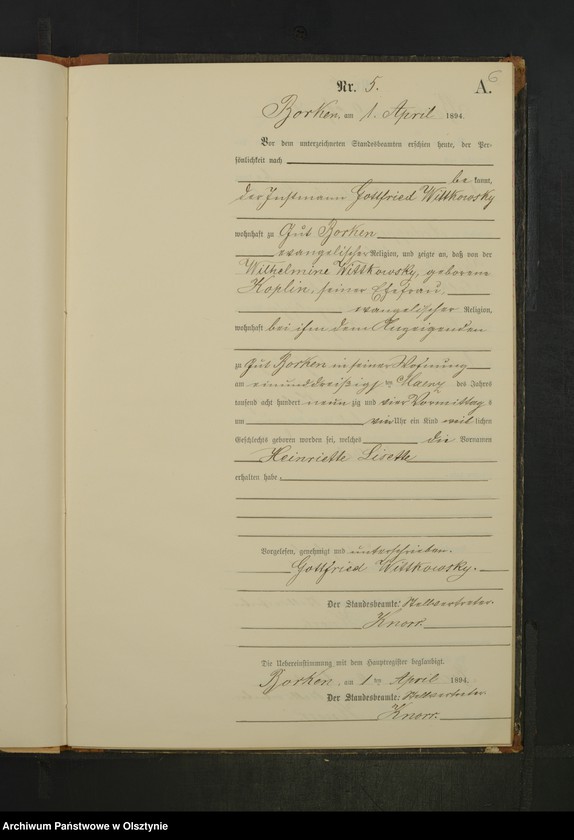 6
Nr. 5. A.
Borken, am 1. April 1894.
Vor dem unterzeichneten Standesbeamten erschien heute, der Per-
sönlichkeit nach
be kannt,
der Instmann Gottfried Wittkowsky
wohnhaft zu Gut Borken
evangelischer Religion, und zeigte an, daß von der
Wilhelmine Wittkowsky, geborene
Koplin, seiner Ehefrau,
evangelischer Religion,
wohnhaft bei ihm dem Anzeigenden
zu Gut Borken in seiner Wohnung
am einunddreißigsten Maerz des Jahres
tausend acht hundert neun zig und vier Vormittag s
um ein Uhr ein Kind weiblichen
Geschlechts geboren worden sei, welches die Vornamen
Heinriette Lisette
erhalten habe.
Vorgelesen, genehmigt und unterschrieben.
Gottfried Wittkowsky.
Der Standesbeamte: Stellvertreter.
Knorr.
Die Uebereinstimmung mit dem Hauptregister beglaubigt.
Borken, am 1 ten April 1894.
Der Standesbeamte: Stellvertreter
Knorr.
Archiwum Państwowe w Olsztynie